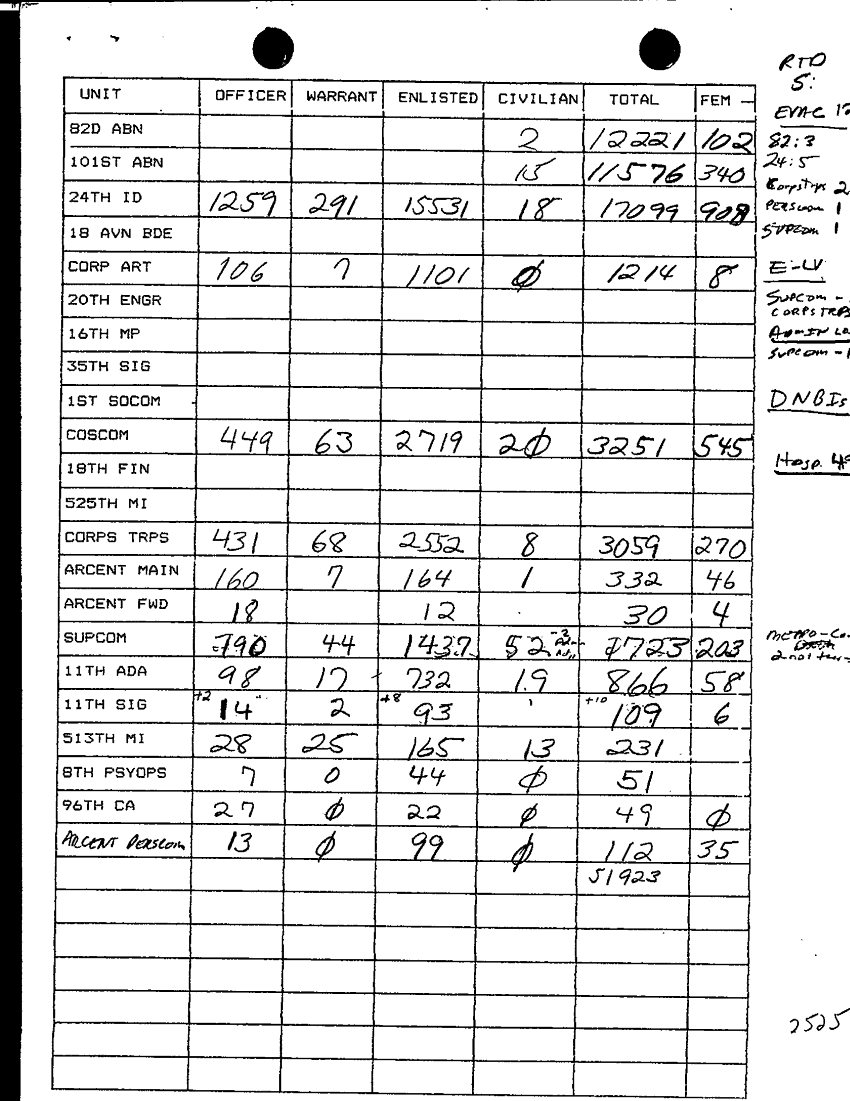 UNIT OFFICER WARRANT ENLISTED CIVILIAN TOTAL FEM -
82D ABN 2 12221 102
101ST ABN 15 11576 340
24TH ID 1259 291 15531 18 17099 908
18 AVN BDE
CORP ART 106 7 1101 Ø 1214 8
20TH ENGR
16TH MP
35TH SIG
1ST SOCOM
COSCOM 449 63 2719 2Ø 3251 545
18TH FIN
525TH MI
CORPS TRPS 431 68 2552 8 3059 270
ARCENT MAIN 160 7 164 1 332 46
ARCENT FWD 18 12 30 4
SUPCOM 790 44 1437 52 -3 1723 203
11TH ADA 98 17 732 19 866 58
11TH SIG +2 14 2 +8 93 +10 109 6
513TH MI 28 25 165 13 231
8TH PSYOPS 7 0 44 Ø 51
96TH CA 27 Ø 22 Ø 49 Ø
ARCENT PERSCOM 13 Ø 99 Ø 112 35
51923
RTD
5:
EVAC 12
82:3
24:5
CorpsTrps 2
PERSCOM 1
SUPCOM 1
E-LV
SUPCOM -
CORPS TRPS
ADMIN
SUPCOM -
DNBIs
Hosp. 49
2525